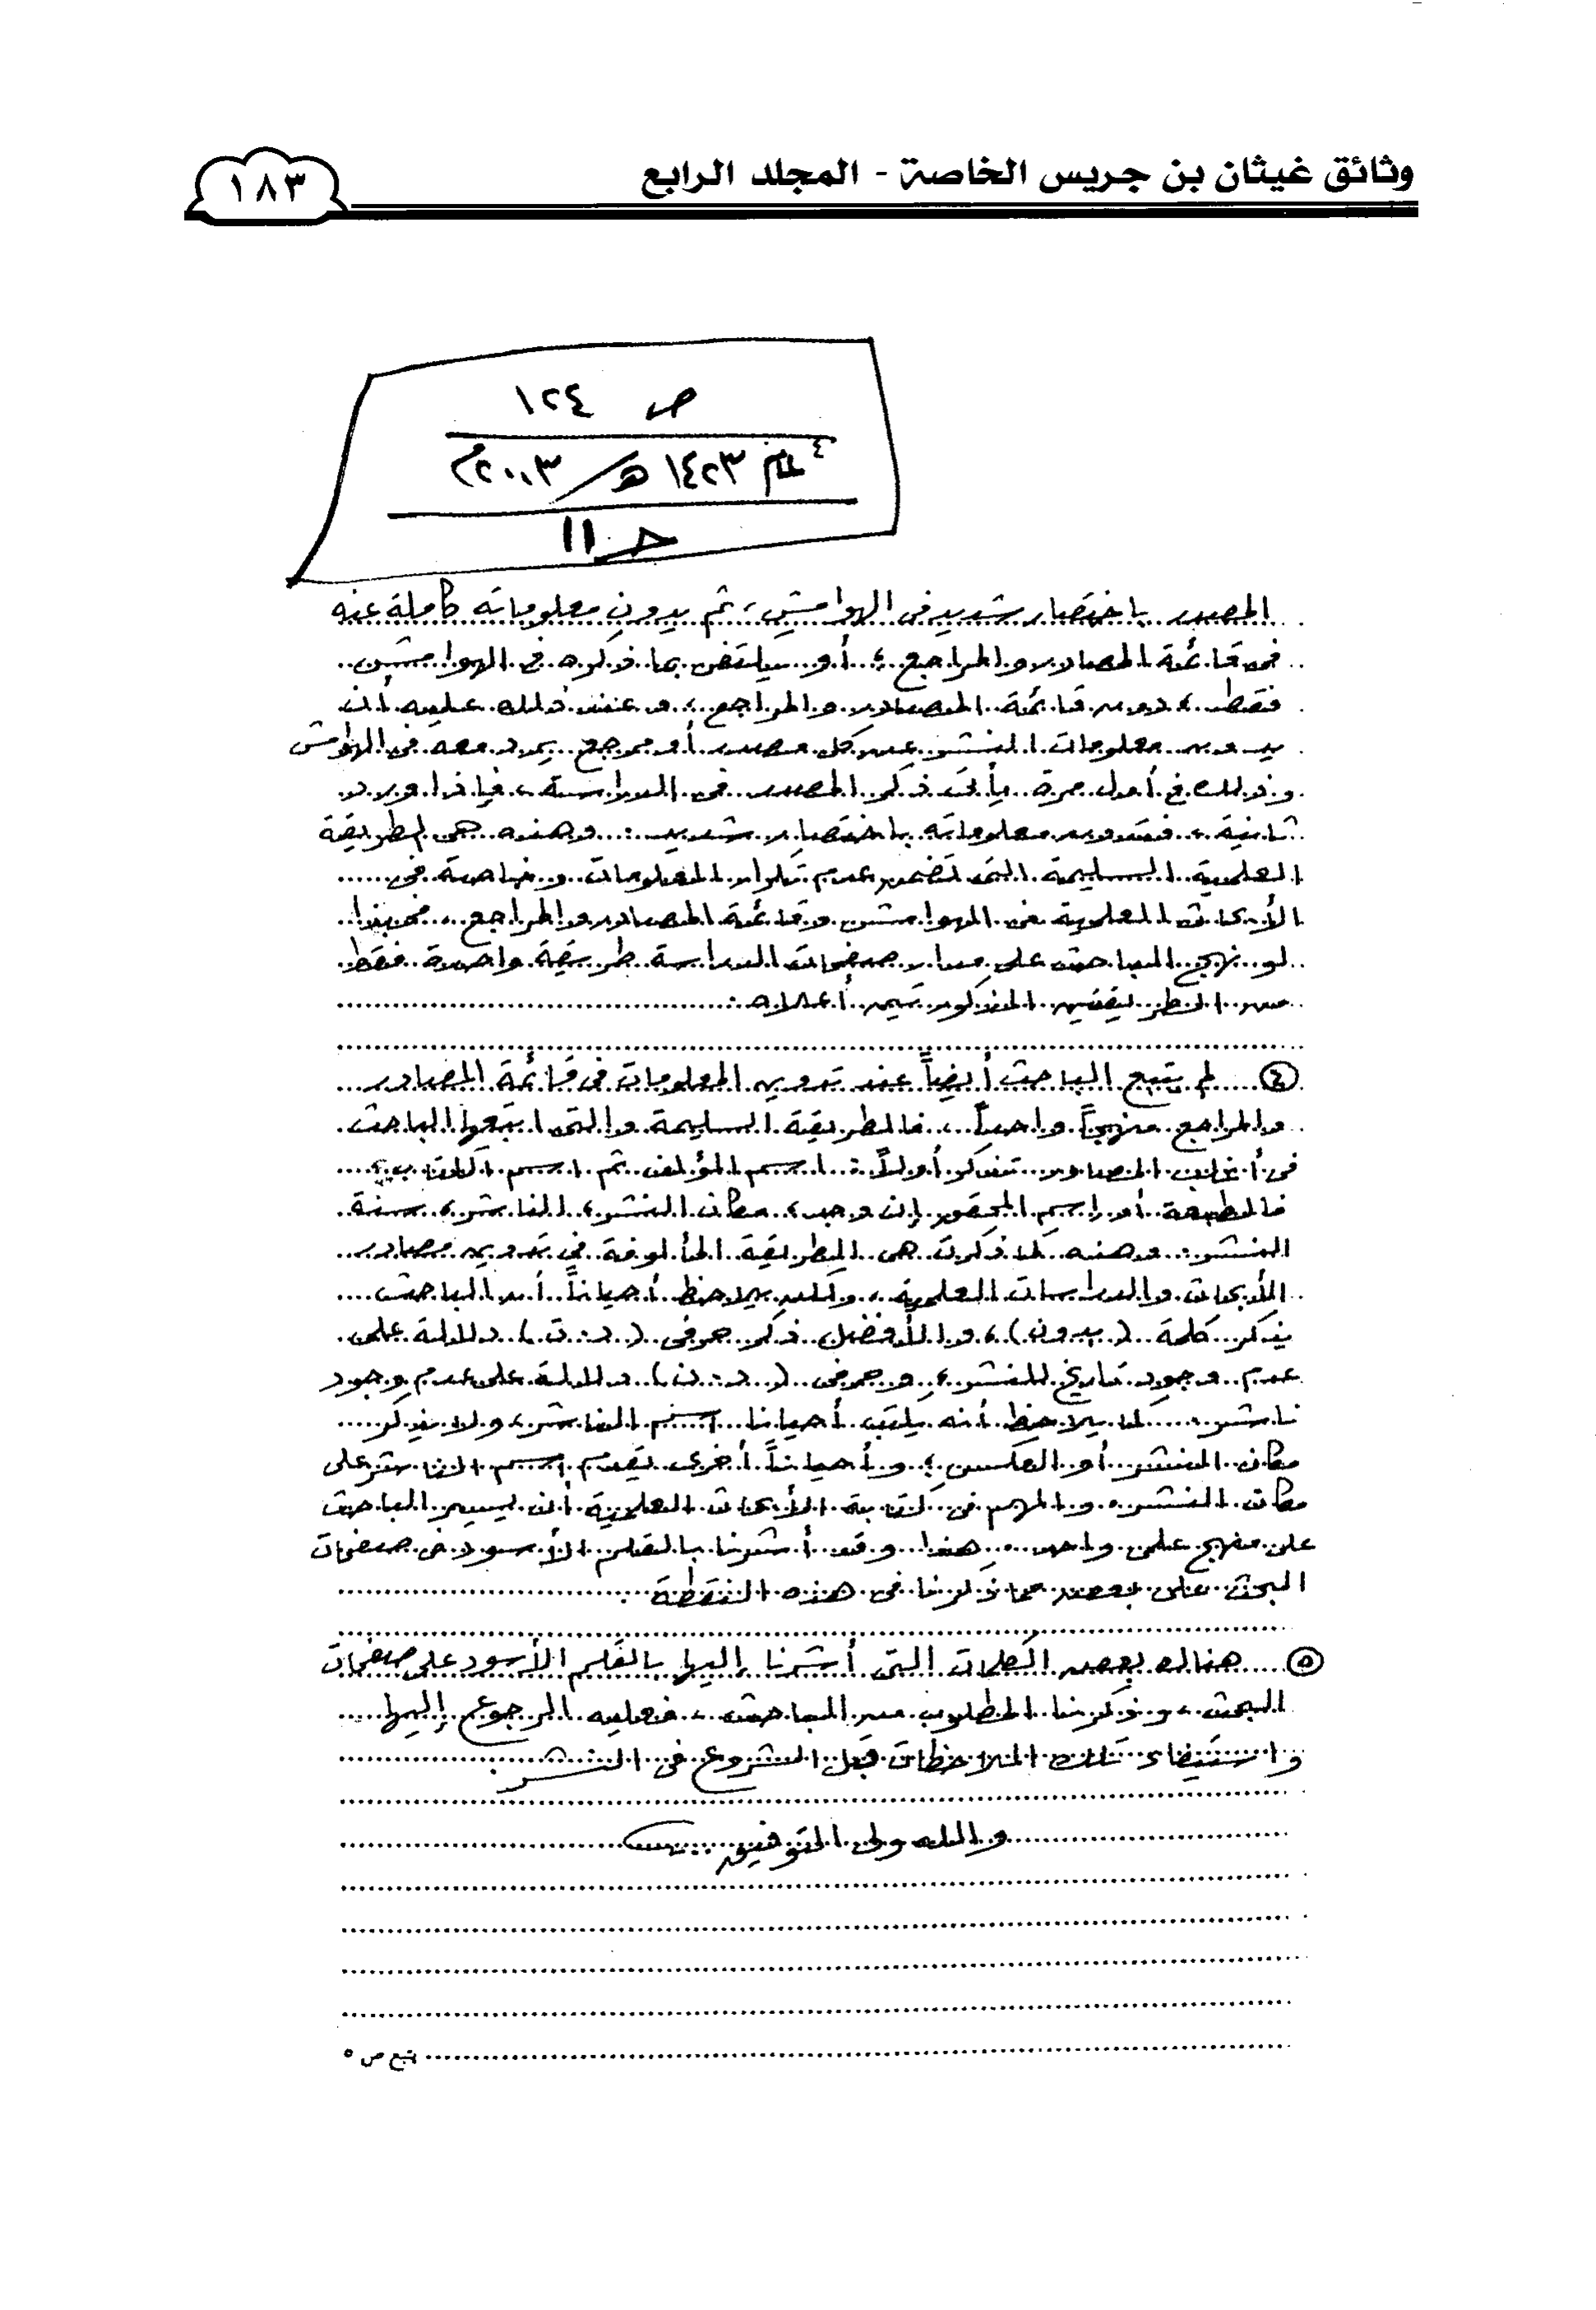 وثائق غيثان بن جريس الخاصة - المجلد الرابع
١٨٣
ص ١٢٤
عام ١٤٢٣ هـ / ٢٠٠٣م
ج ١١
المصدر باختصار شديد في الهوامش، ثم يدون معلوماته كاملة عنه
في قائمة المصادر والمراجع؛ أو سيكتفى بما ذكره في الهوامش
فقط، دون قائمة المصادر والمراجع، وعند ذلك عليه أن
يدون معلومات النشر عن كل مصدر أو مرجع يرد معه في الهوامش
وذلك في أول مرة يأتي ذكر المصدر في الدراسة، فإذا ورد
ثانية، فتدون معلوماته باختصار شديد. وهذه هي الطريقة
العلمية السليمة التي تضمن عدم تكرار المعلومات وخاصة في
الأبحاث العلمية في الهوامش وقائمة المصادر والمراجع، فحبذا
لو نهج الباحث على مدار صفحات الدراسة طريقة واحدة فقط
من الطريقتين المذكورتين أعلاه.
(٤) لم يتبع الباحث أيضاً عند تدوين المعلومات في قائمة المصادر
والمراجع منهجاً واحداً، فالطريقة السليمة والتي اتبعها الباحث
في أغلب المصادر تذكر أولاً: اسم المؤلف ثم اسم الكتاب،
فالطبعة أو اسم المحقق إن وجد، مكان النشر، الناشر، سنة
النشر. وهذه كما ذكرت هي الطريقة المألوفة في تدوين مصادر
الأبحاث والدراسات العلمية، ولكن يلاحظ أحياناً أن الباحث
يذكر كلمة (بدون)، والأفضل ذكر حرفي (د. ت) دلالة على
عدم وجود تاريخ للنشر، وحرفي (د. ن) دلالة على عدم وجود
ناشر. كما يلاحظ أنه يكتب أحيانا اسم الناشر، ولا يذكر
مكان النشر أو العكس؛ وأحياناً أخرى يقدم اسم الناشر على
مكان النشر. والمهم في كتابة الأبحاث العلمية أن يسير الباحث
على منهج علمي واحد. هذا وقد أشرنا بالقلم الأسود في صفحات
البحث على بعض مما ذكرنا في هذه النقطة.
(٥) هناك بعض الكلمات التي أشرنا إليها بالقلم الأسود على صفحات
البحث، وذكرنا المطلوب من الباحث، فعليه الرجوع إليها
واستيفاء تلك الملاحظات قبل الشروع في النشر.
والله ولي التوفيق
يتبع ص ٥